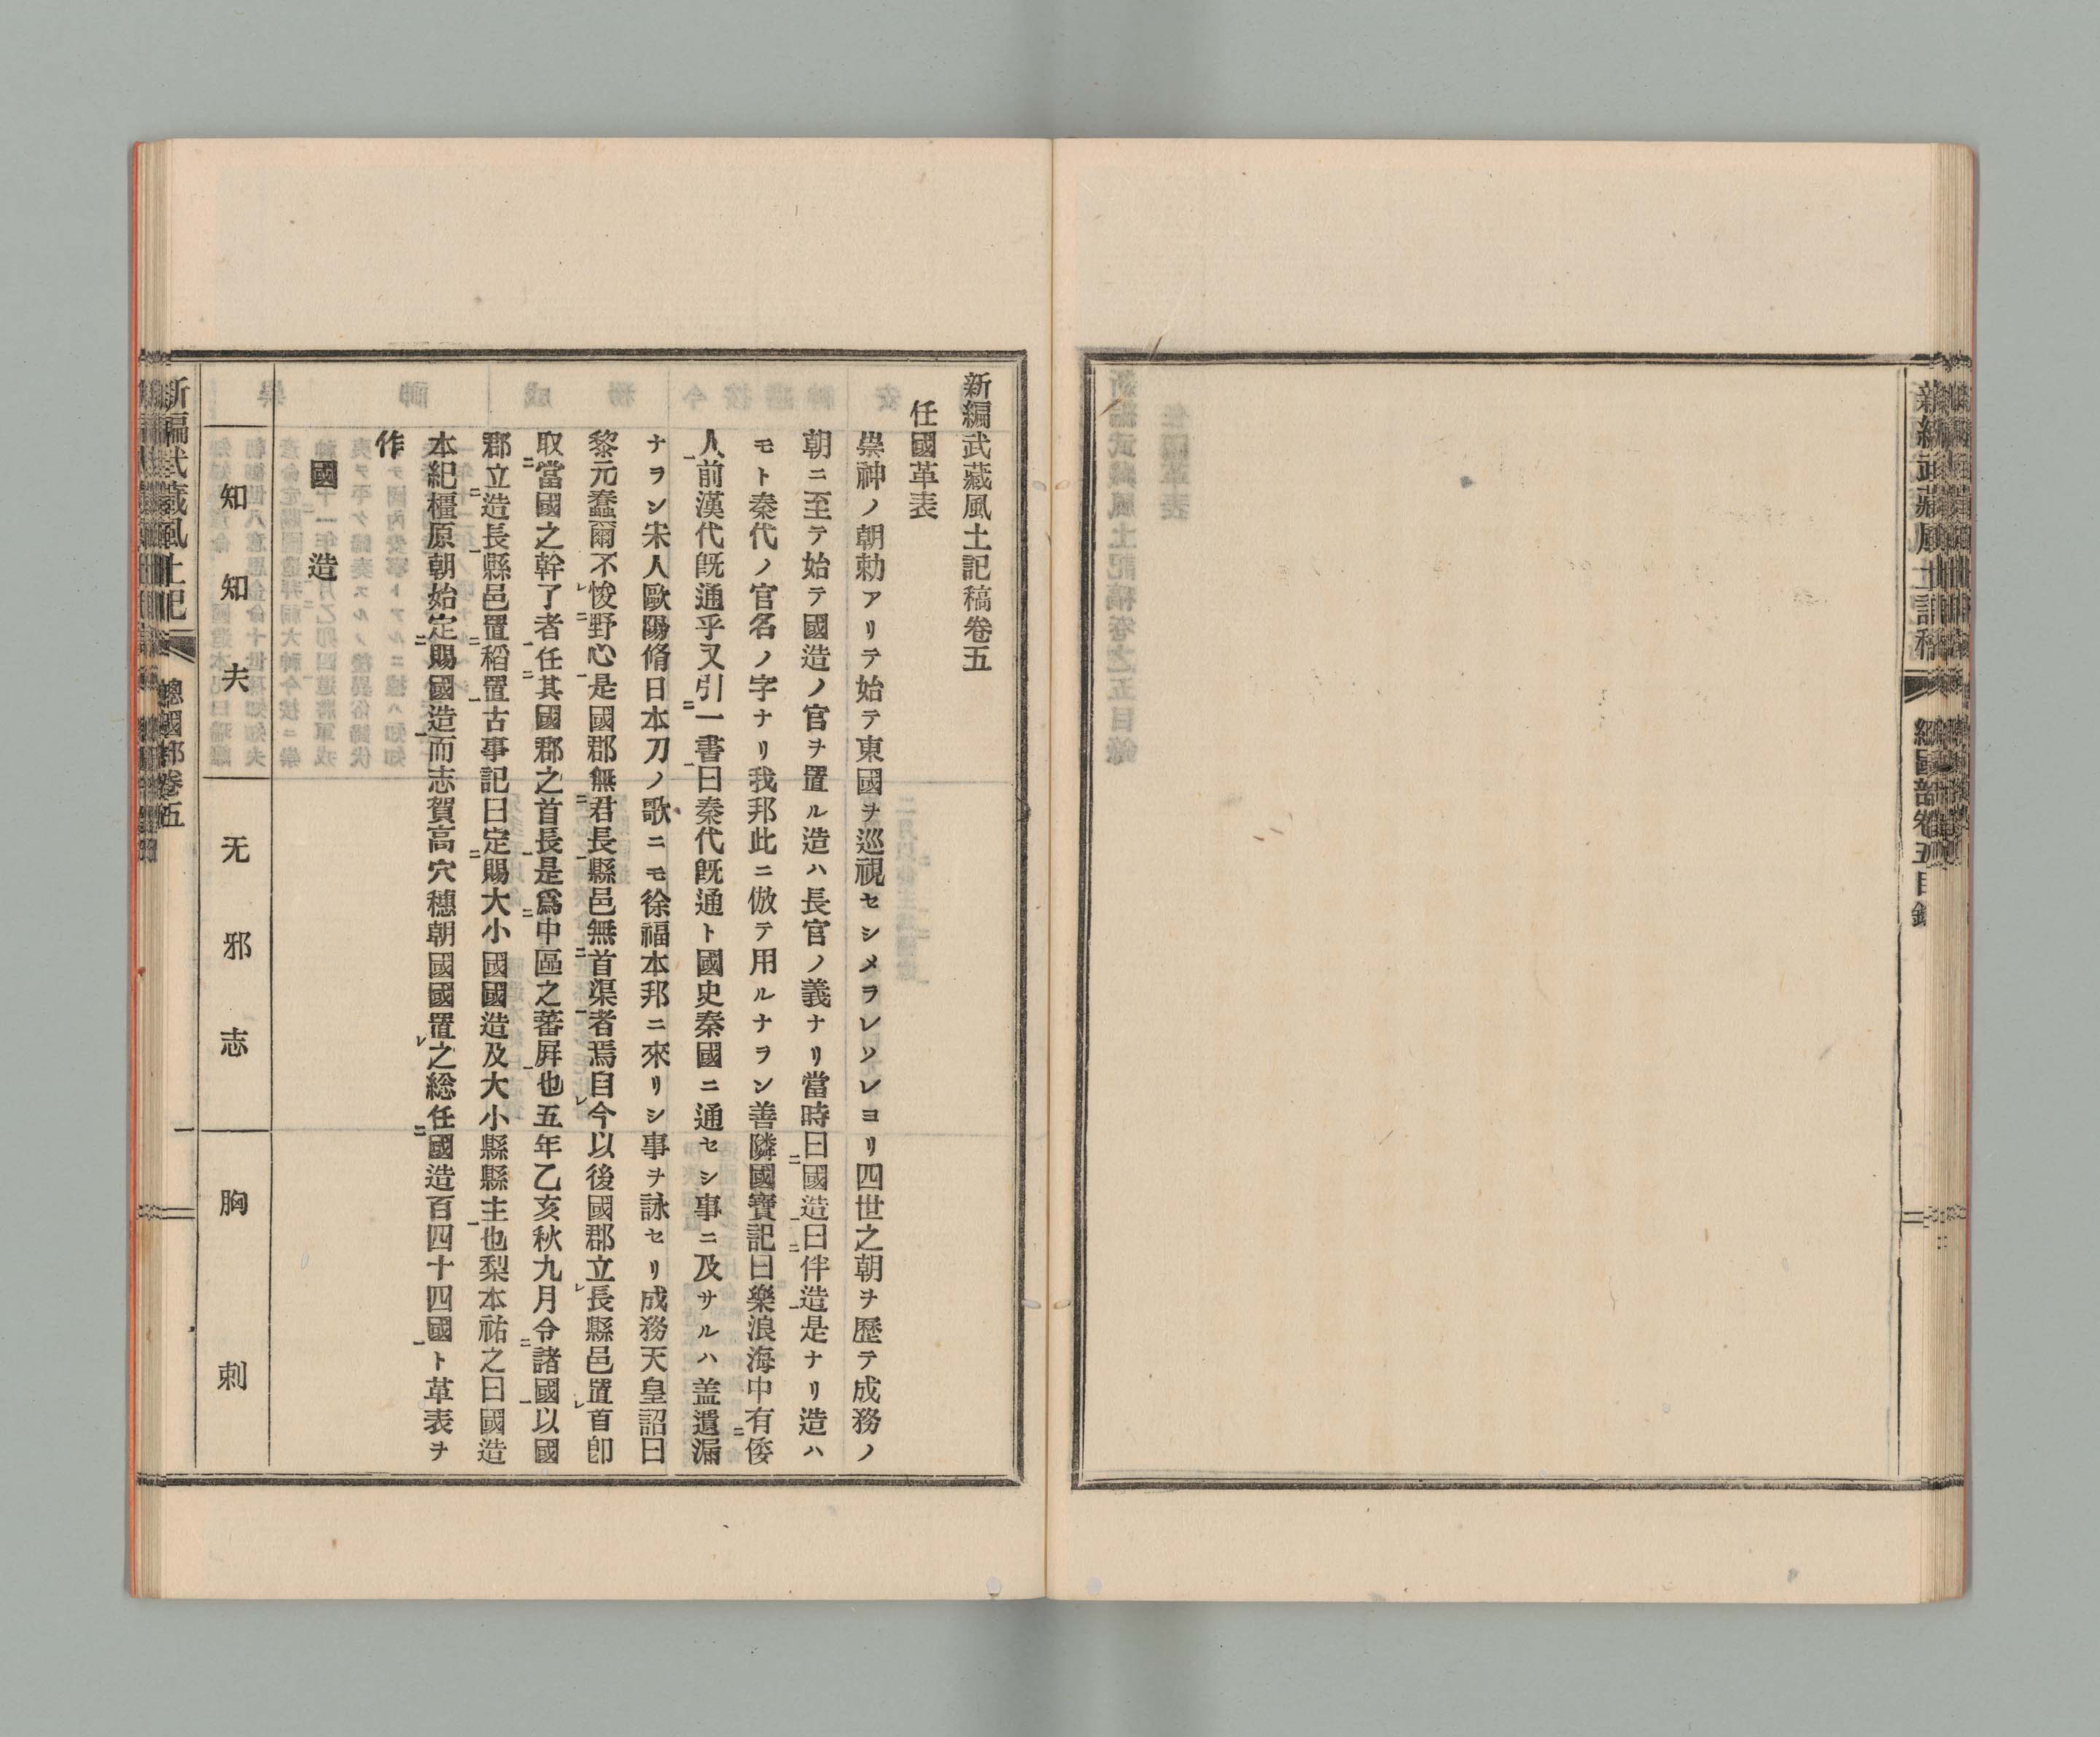 新編武藏風土記稿
總國部卷五目錄
新編武藏風土記稿卷五
任國革表
崇神ノ朝勅アリテ始テ東國ヲ巡視セシメラレソレヨリ四世之朝ヲ歷テ成務ノ
朝ニ至テ始テ國造ノ官ヲ置ル造ハ長官ノ義ナリ當時曰國造曰伴造是ナリ造ハ
モト秦代ノ官名ノ字ナリ我邦此ニ倣テ用ルナラン善隣國寶記曰樂浪海中有倭
人前漢代旣通乎又引一書曰秦代旣通ト國史秦國ニ通セシ事ニ及サルハ盖遺漏
ナヲン宋人歐陽脩日本刀ノ歌ニモ徐福本邦ニ來リシ事ヲ詠セリ成務天皇詔曰
黎元蠢爾不悛野心是國郡無君長縣邑無首渠者焉自今以後國郡立長縣邑置首卽
取當國之幹了者任其國郡之首長是爲中區之蕃屛也五年乙亥秋九月令諸國以國
郡立造長縣邑置稻置古事記曰定賜大小國國造及大小縣縣主也梨本祐之曰國造
本紀橿原朝始定賜國造而志賀高穴穗朝國國置之総任國造百四十四國ト革表ヲ
作
國造
知知夫
无邪志
胸刺
新編武藏風土記
總國部卷五
一